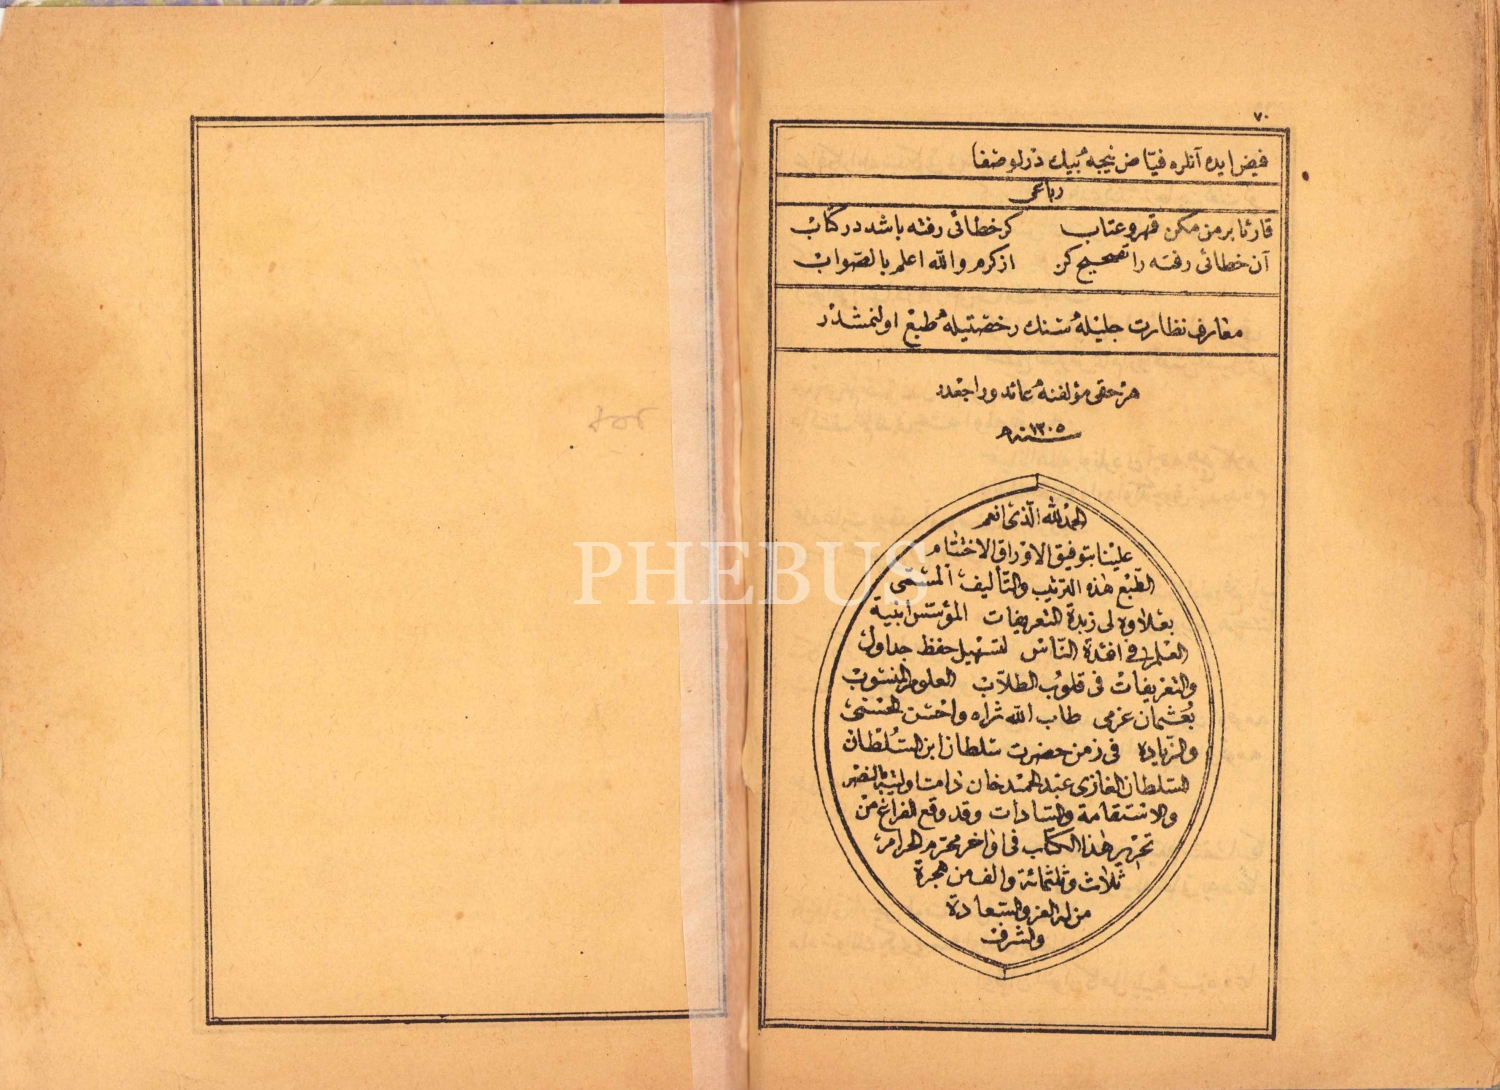 ٧٠
فيض ايده آنلره فيّاض نيجه بيك درلو صفا
رباعى
قارئا بر من مكن قهر و عتاب كر خطائى رفته باشد در كتاب
آن خطائى رفته را تصحيح كن از كرم والله اعلم بالصواب
معارف نظارت جليله سنك رخصتيله طبع اولنمشدر
هر حقى مؤلفنه عائد و راجعدر
سنه ١٣٠٥
الحمد لله الّذى انعم
علينا بتوفيق الاوراق الاختتام
الطبع هذه الترتيب والتأليف المسمّى
بعلاوه لى زبدة التعريفات المؤسس ابنية
العلم فى افئدة الناس لتسهيل حفظ جداول
والتعريفات فى قلوب الطلاب العلوم المنسوب
بعثمان عزمى طاب الله ثراه واحسن الحسنى
والزياده فى زمن حضرت سلطان ابن السلطان
السلطان الغازى عبد الحميد خان دامت بالنصر
والاستقامة والسادات وقد وقع الفراغ من
تحرير هذا الكتاب فى اواخر محرم الحرام
ثلاث وثلثمائة والف من هجرة
من له العز والسعادة
والشرف
PHEBUS